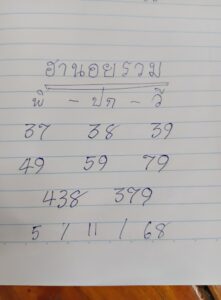 ฮานอยรวม
พิ - ปก - วี
37 38 39
49 59 79
438 379
5 / 11 / 68